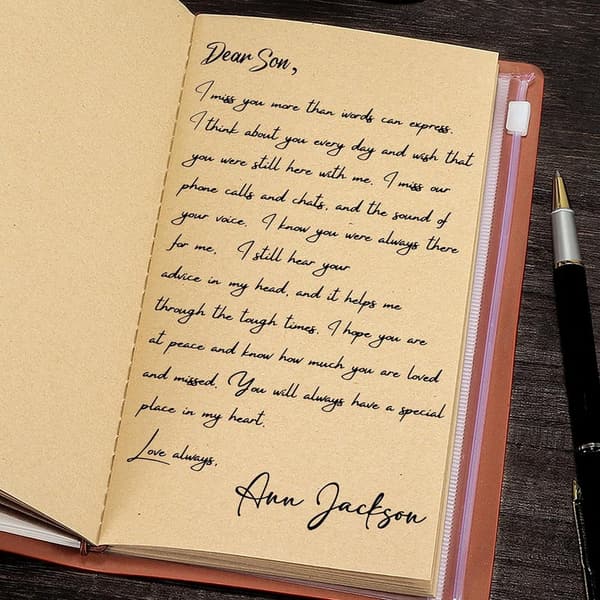 Dear Son,
I miss you more than words can express.
I think about you every day and wish that
you were still here with me. I miss our
phone calls and chats, and the sound of
your voice. I know you were always there
for me. I still hear your
advice in my head, and it helps me
through the tough times. I hope you are
at peace and know how much you are loved
and missed. You will always have a special
place in my heart.
Love always,
Ann Jackson